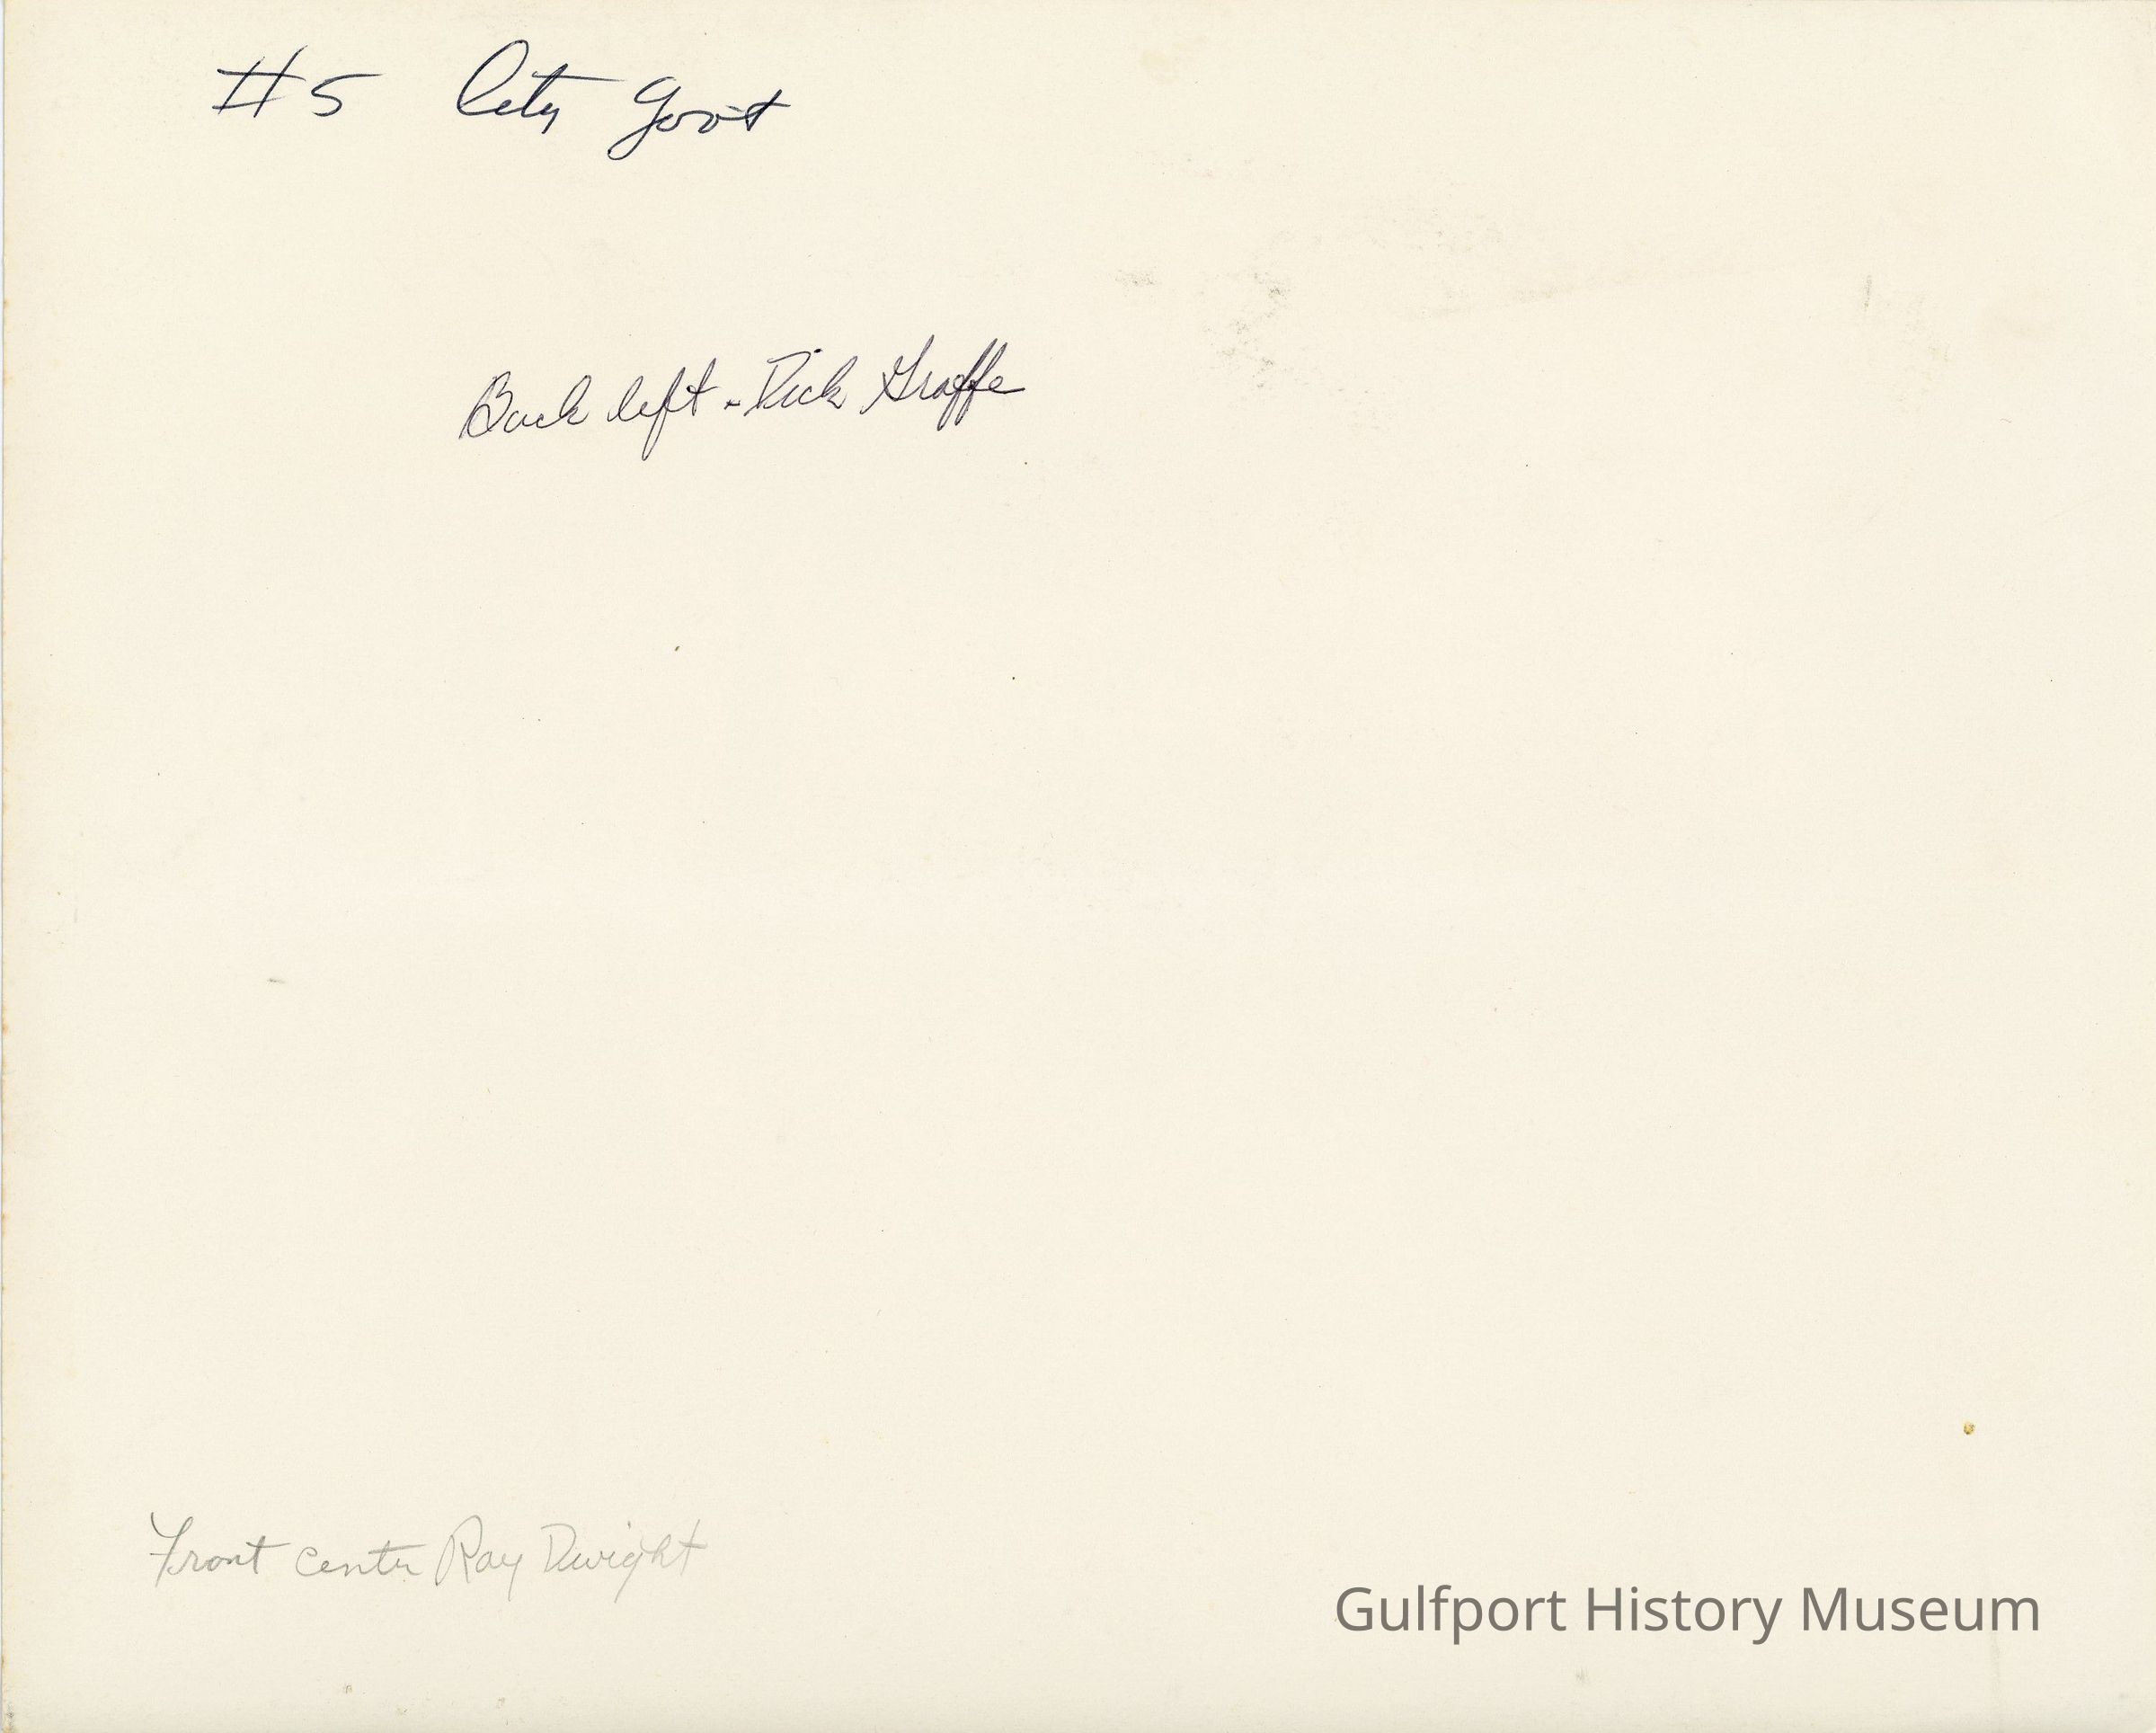 #5 City Gov't
Back left - Dick Graffe
Front center Ray Dwight
Gulfport History Museum